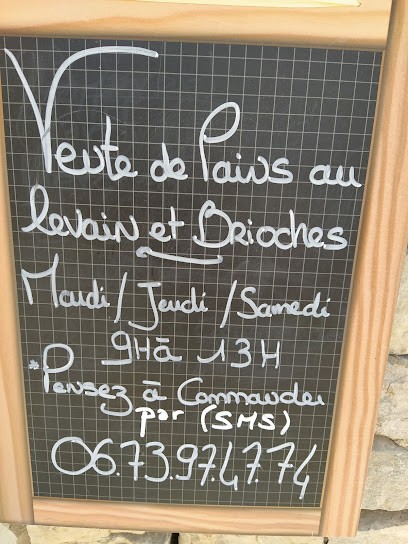 Vente de Pains au
levain et Brioches
Mardi / Jeudi / Samedi
9H à 13H
*Pensez à Commander
par (SMS)
06.73.97.47.74